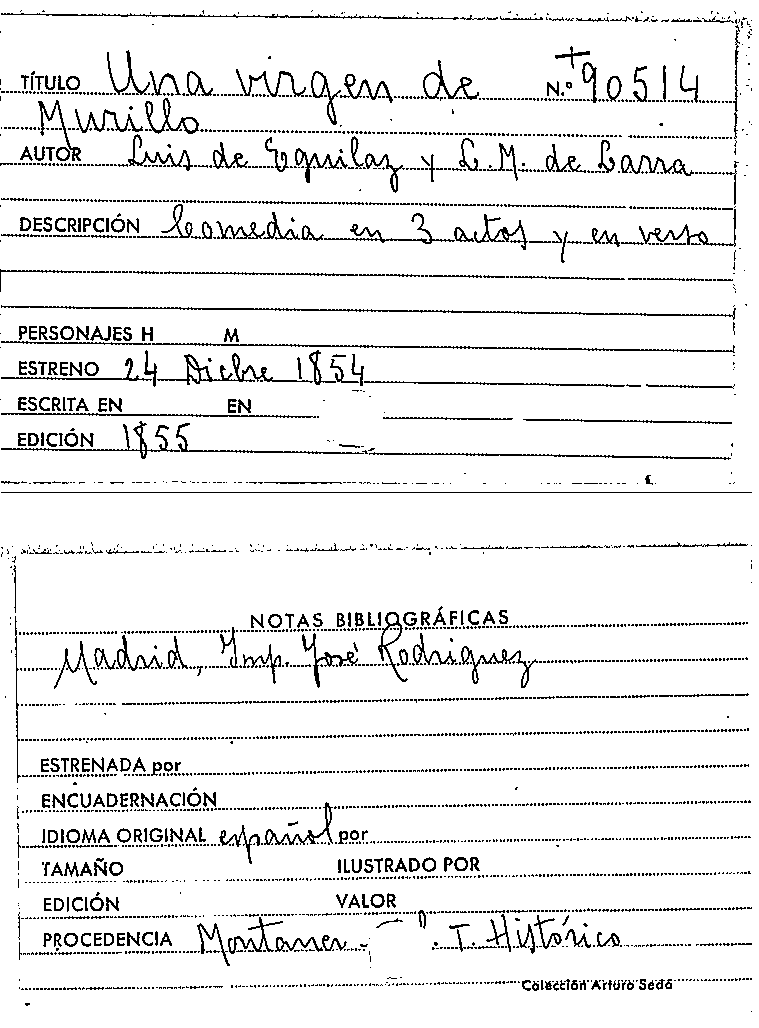 TÍTULO Una virgen de N.º +90514
Murillo
AUTOR Luis de Eguilaz y L. M. de Larra
DESCRIPCIÓN Comedia en 3 actos y en verso
PERSONAJES H M
ESTRENO 24 Dicbre 1854
ESCRITA EN EN
EDICIÓN 1855
NOTAS BIBLIOGRÁFICAS
Madrid, Imp. José Rodriguez
ESTRENADA por
ENCUADERNACIÓN
IDIOMA ORIGINAL español por
TAMAÑO ILUSTRADO POR
EDICIÓN VALOR
PROCEDENCIA Montaner - T. Histórico
Colección Arturo Sedó